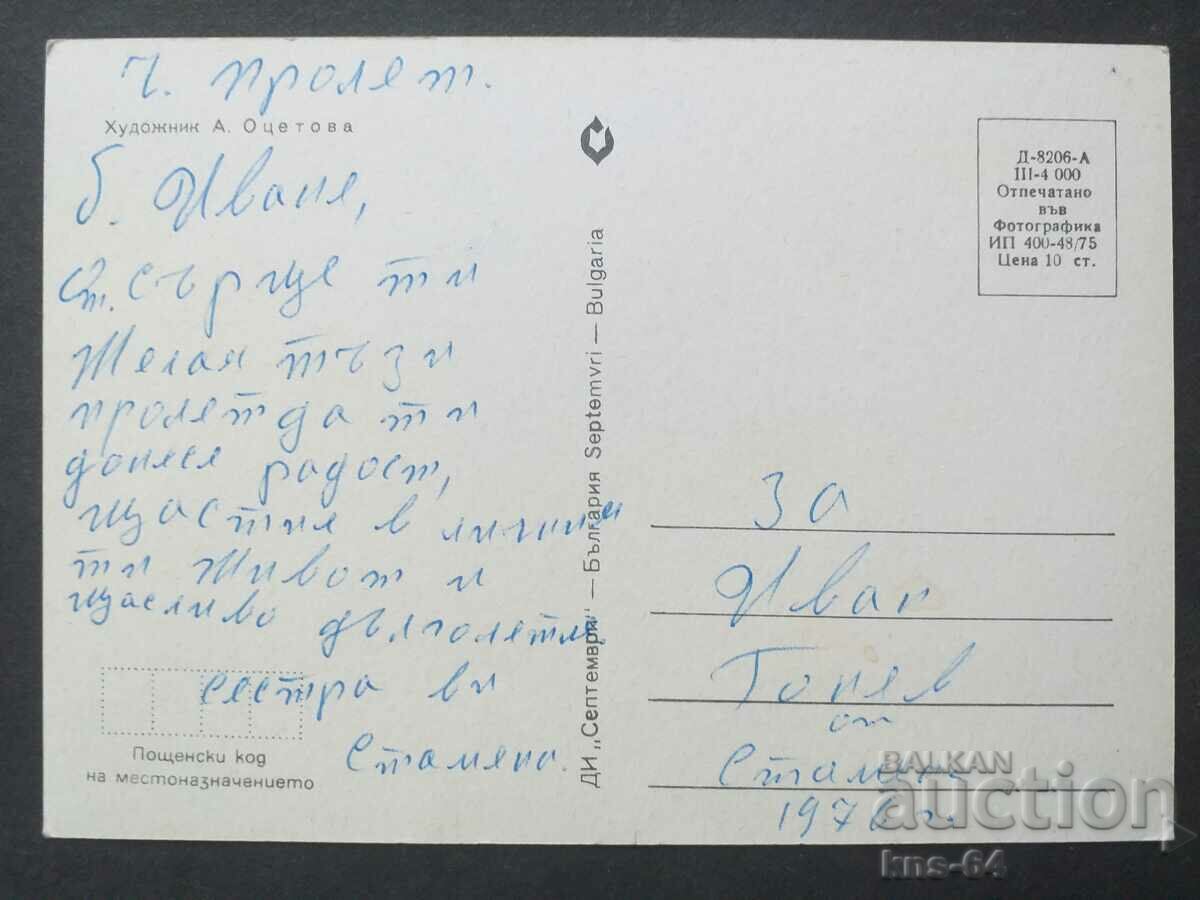 Ч. пролет.
Художник А. Оцетова
б. Иване,
От. сърце ти
желая тъзи
пролет да ти
донеся радост,
щастия в личния
ти живот и
щасливо дълголетие
сестра ви
Стамена.
Пощенски код
на местоназначението
ДИ „Септември" — България Septemvri — Bulgaria
Д-8206-А
III-4 000
Отпечатано
във
Фотографика
ИП 400-48/75
Цена 10 ст.
За
Иван
Гонев
от
1976 г.
BALKAN
auction
kns-64